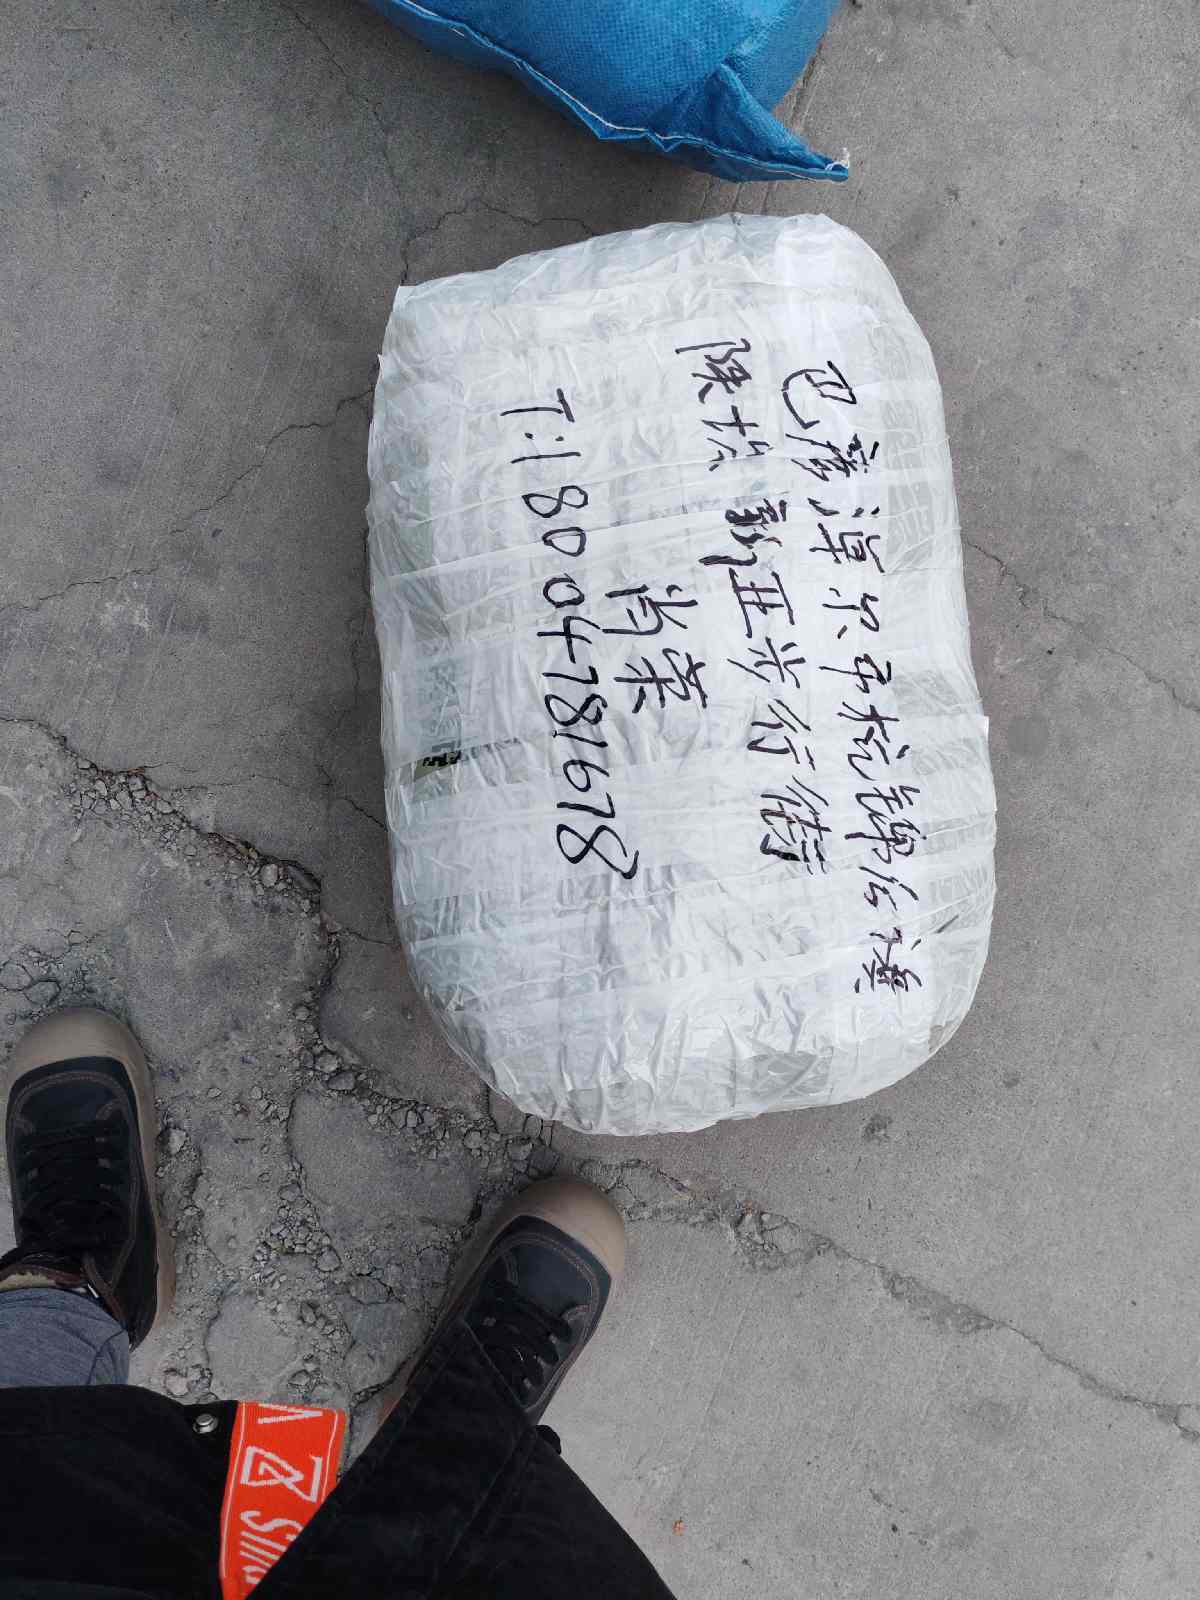 巴彦淖尔市杭锦后旗
陕坝 新亚步行街
肖荣
T:18004781678